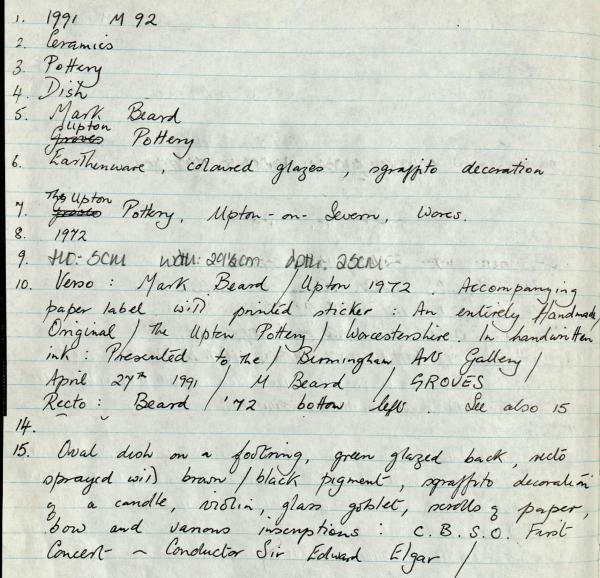 1. 1991 M 92
2. Ceramics
3. Pottery
4. Dish
5. Mark Beard
Upton
Groves Pottery
6. Earthenware, coloured glazes, sgraffito decoration
The Upton
7. Pottery, Upton-on-Severn, Worcs.
8. 1972
9. HT: 5cm wdth: 29½cm dpth: 25cm
10. Verso: Mark Beard / Upton 1972. Accompanying
paper label with printed sticker: An entirely Handmade/
Original / The Upton Pottery / Worcestershire. In handwritten
ink: Presented to the / Birmingham Art Gallery /
April 27th 1991 / M Beard / GROVES
Recto: Beard / '72 bottom left. See also 15
14.
15. Oval dish on a footring, green glazed back, recto
sprayed with brown / black pigment, sgraffito decoration
of a candle, violin, glass goblet, scrolls of paper,
bow and various inscriptions: C.B.S.O. First
Concert ~ Conductor Sir Edward Elgar /